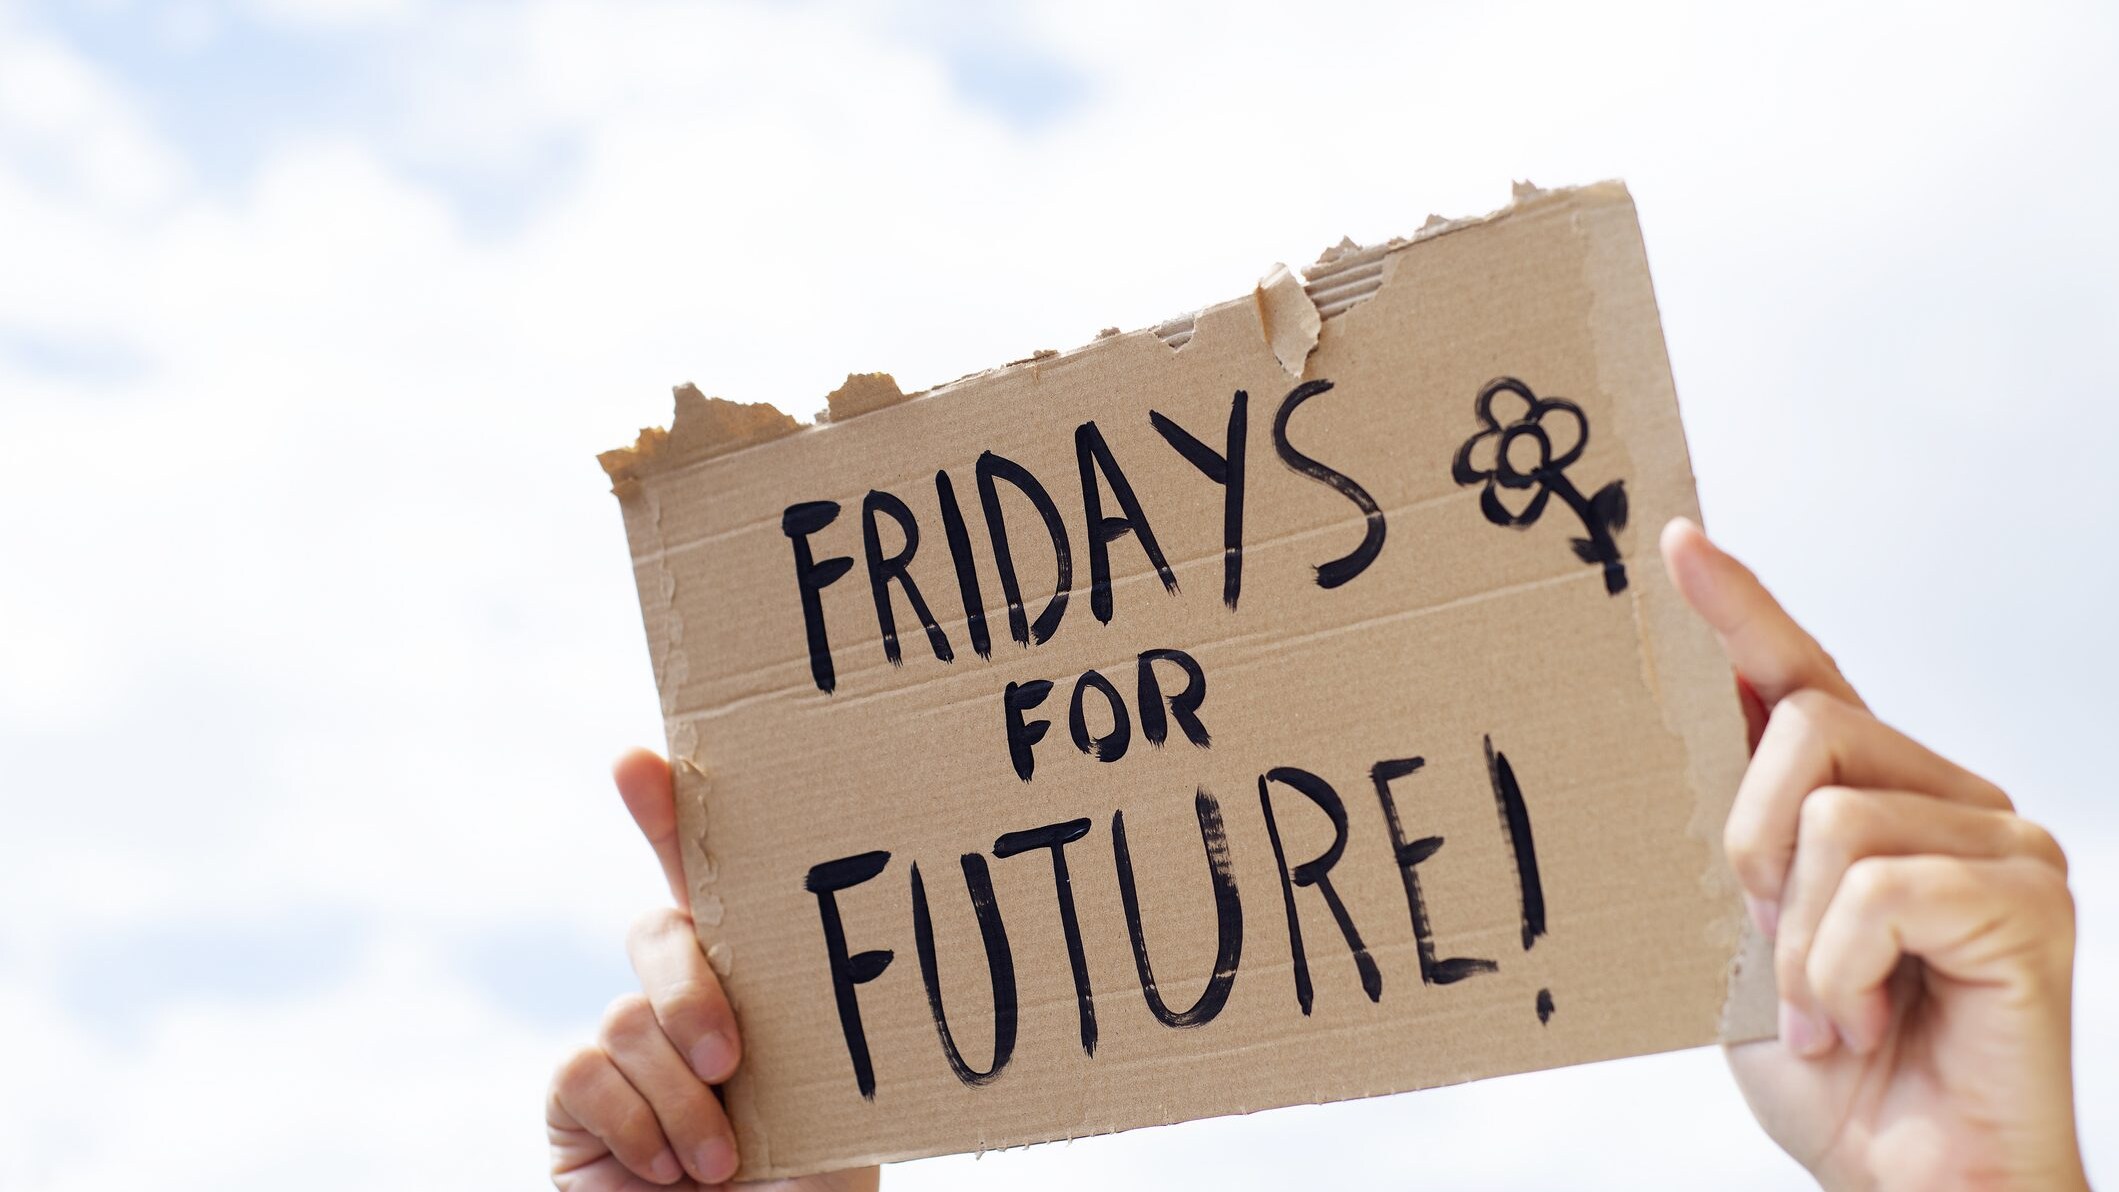 FRIDAYS
FOR
FUTURE!